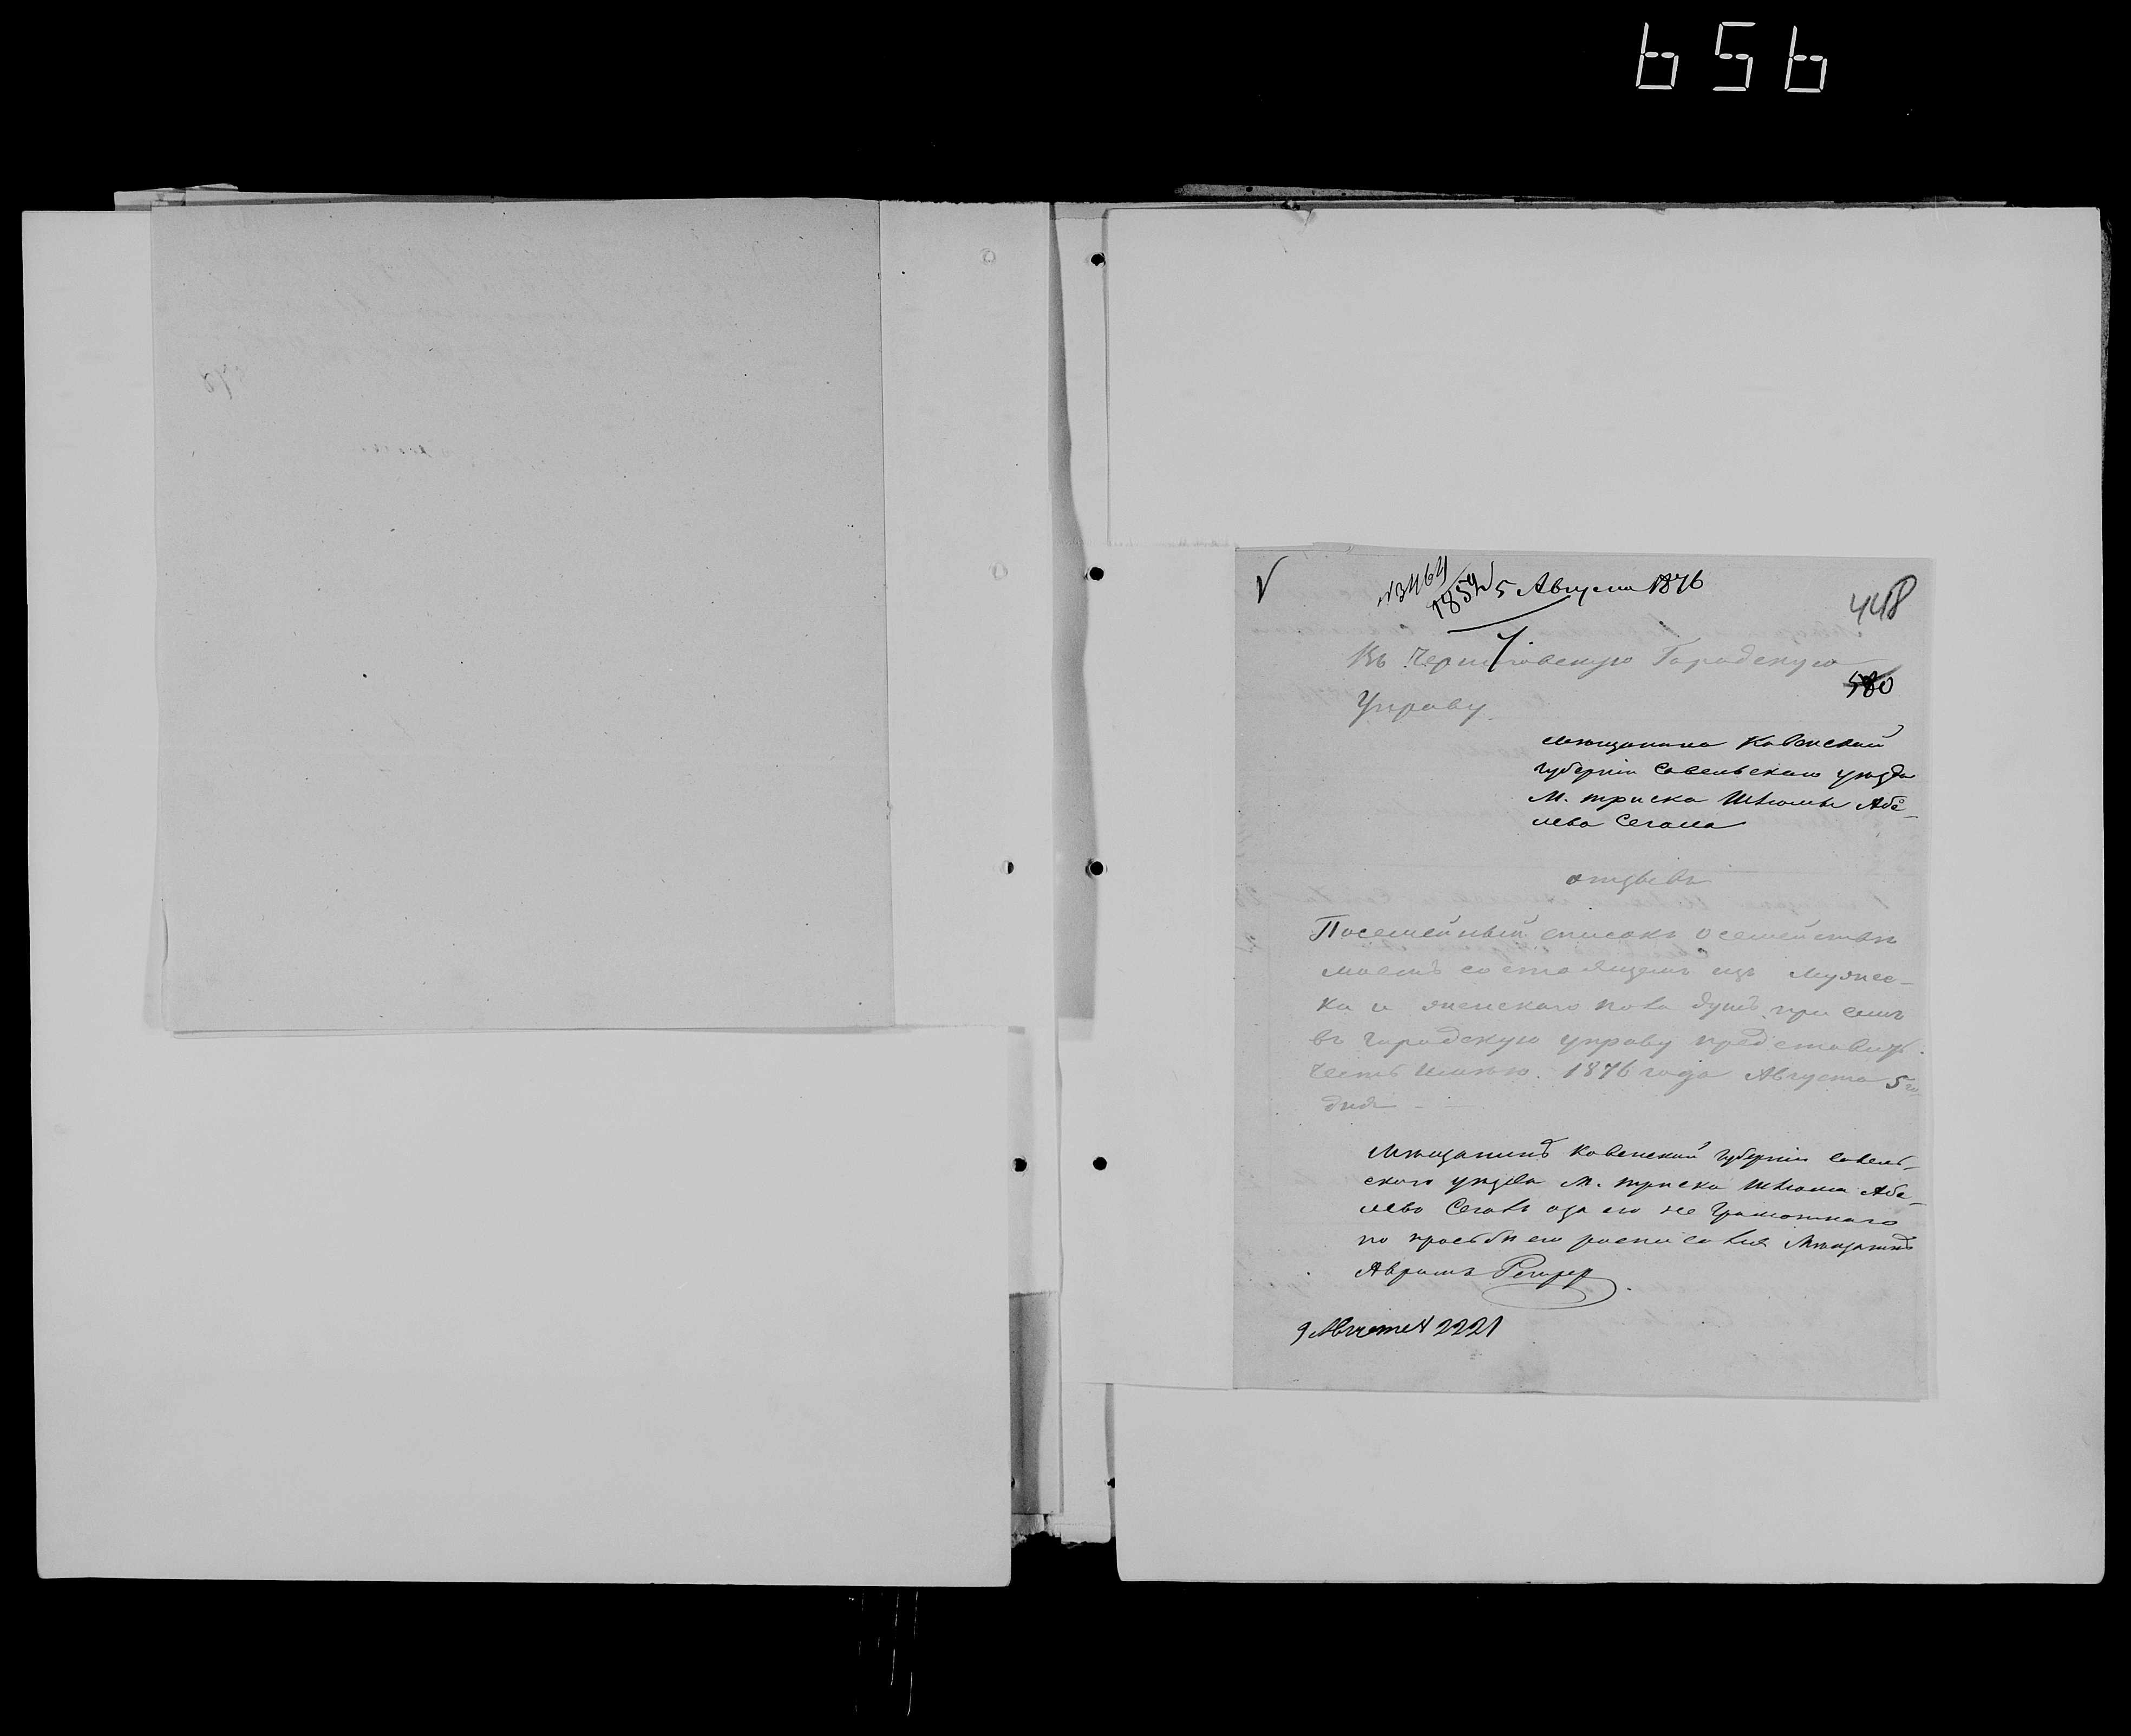 656
5 Августа 1876
448
Въ Черниговскую Городскую
580
Управу
мещанина Ковенской
губернии Савельскаго уезда
М. триска Шлиомы Абе-
лева Сегала
отзывъ
Посемейный списокъ о семействе
моемъ состоящемъ изъ мужес-
ка и женскаго пола душъ при семъ
въ городскую управу представить
честь имею. 1876 года Августа 5го
дня
Мещанинъ Ковенской губернии Савель-
скаго уезда М. триска Абе-
лево а за его не грамотнаго
по прозьбе его росписался Мещанинъ
Аврамъ
9 Августа 2221